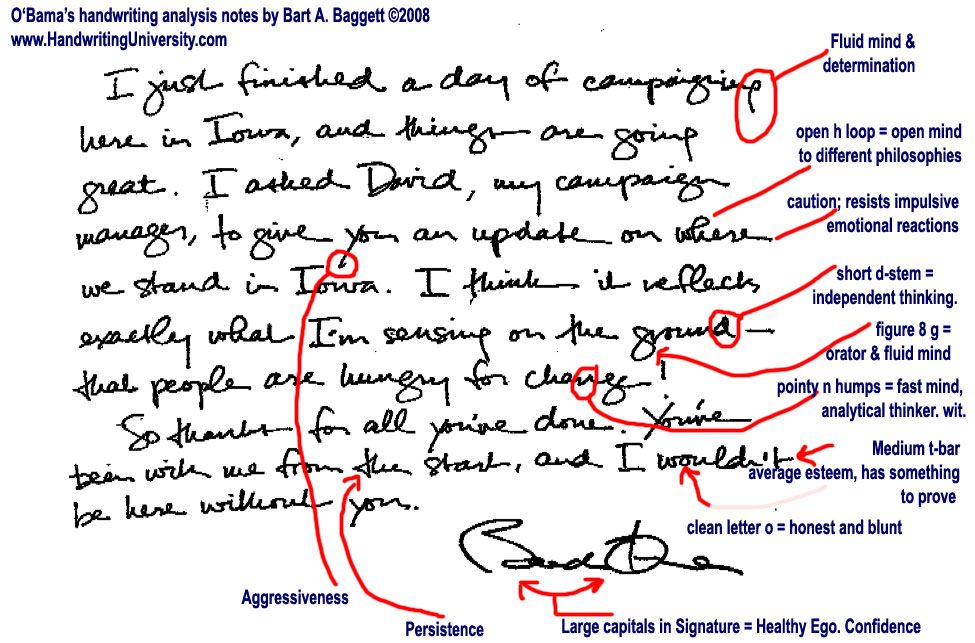 O'Bama's handwriting analysis notes by Bart A. Baggett ©2008
www.HandwritingUniversity.com
Fluid mind &
determination
I just finished a day of campaigning
here in Iowa, and things are going
great. I asked David, my campaign
manager, to give you an update on where
we stand in Iowa. I think it reflects
exactly what I'm sensing on the ground —
that people are hungry for change!
So thanks for all you've done. You've
been with me from the start, and I wouldn't
be here without you.
open h loop = open mind
to different philosophies
caution; resists impulsive
emotional reactions
short d-stem =
independent thinking.
figure 8 g =
orator & fluid mind
pointy n humps = fast mind,
analytical thinker. wit.
Medium t-bar
average esteem, has something
to prove
clean letter o = honest and blunt
Aggressiveness
Persistence
Large capitals in Signature = Healthy Ego. Confidence